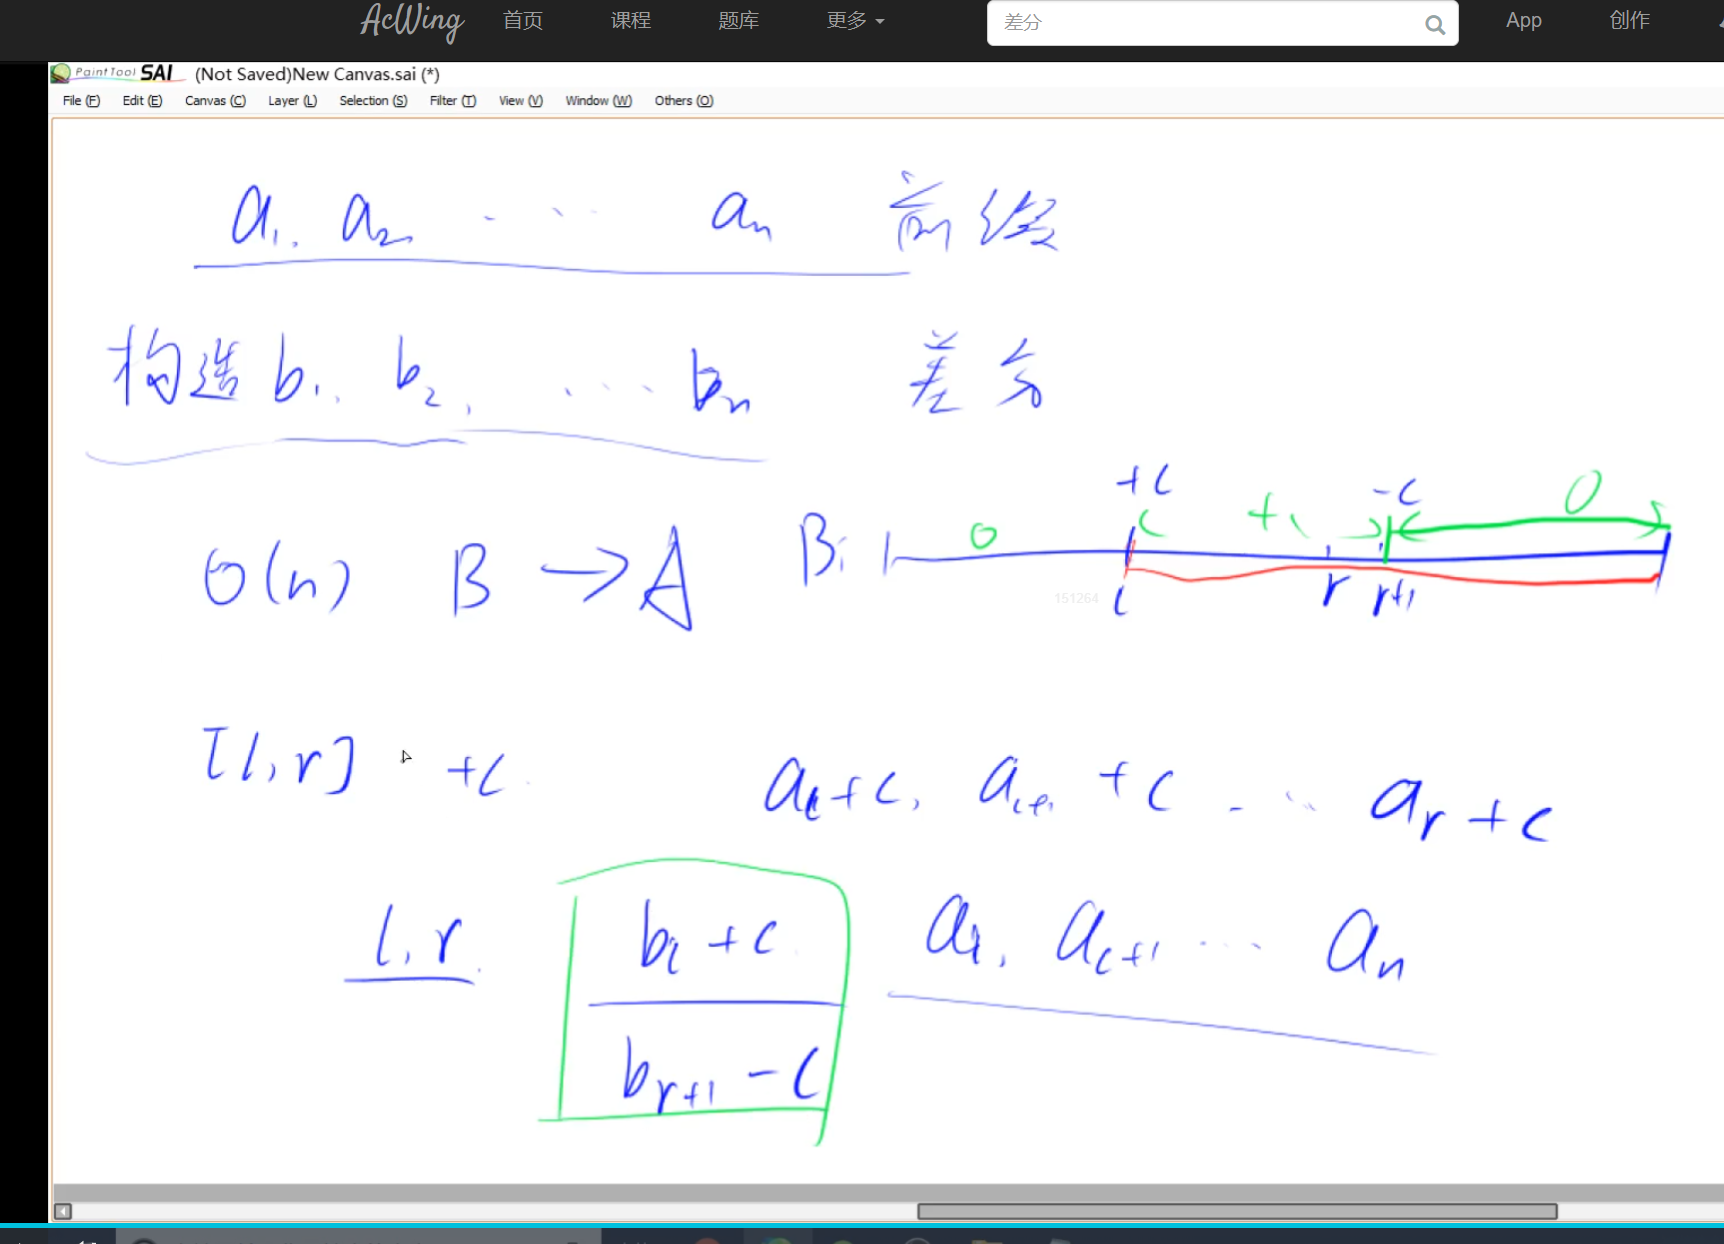 AcWing 首页 课程 题库 更多 差分 App 创作
PaintTool SAI (Not Saved)New Canvas.sai (*)
File (F) Edit (E) Canvas (C) Layer (L) Selection (S) Filter (T) View (V) Window (W) Others (O)
a1, a2, ... an 前缀
构造 b1, b2, ... bn 差分
+c -c 0
O(n) B → A B: 0 +c
151264 l r r+1
[l, r] +c al+c, al+1 +c ... ar+c
l, r bl+c al, al+1 ... an
br+1 - c